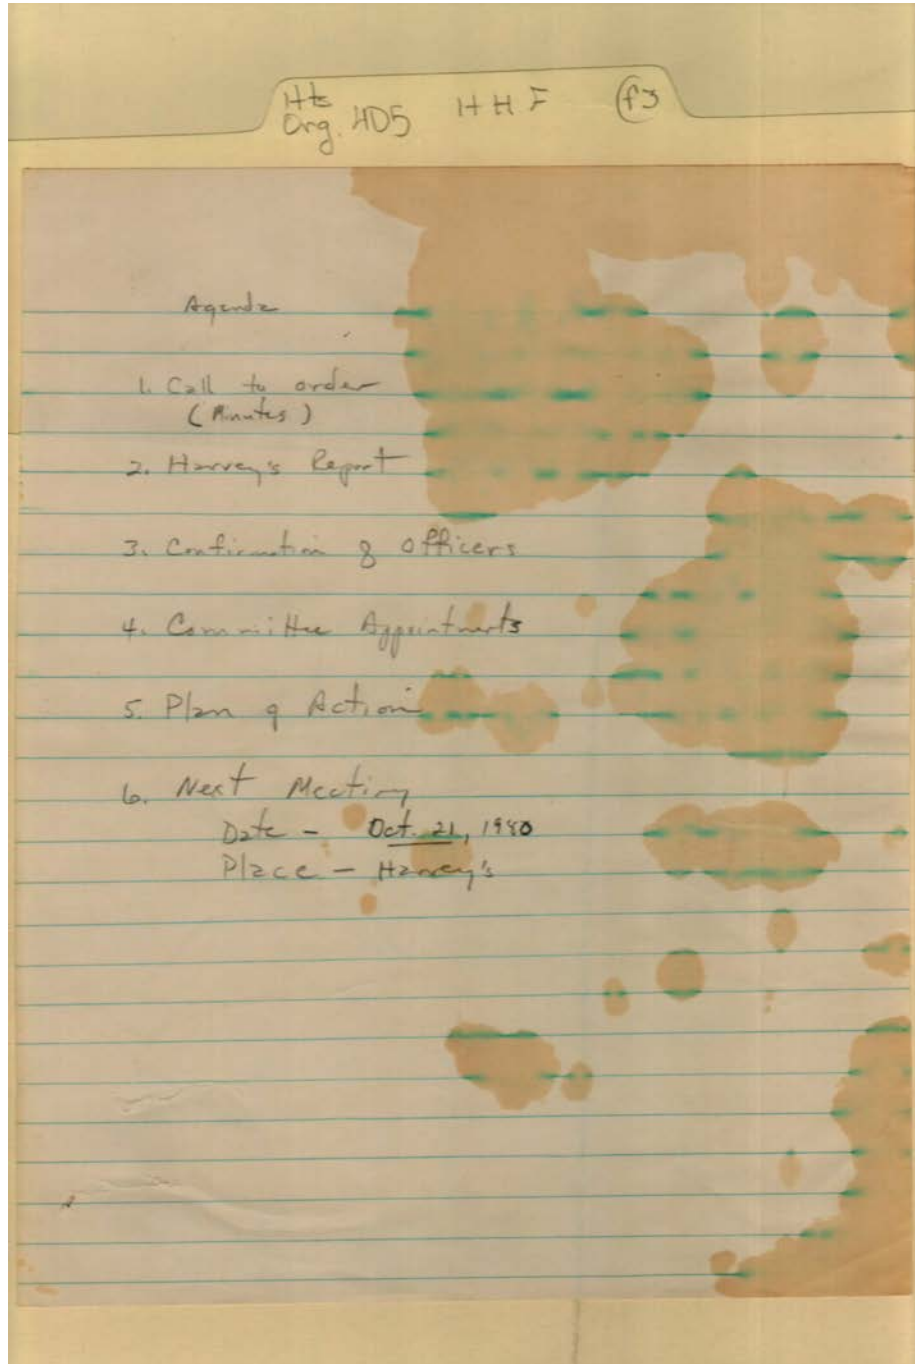 Hts
Org. 4D5 HHF f3
Agenda
1. Call to order
(Minutes)
2. Harvey's Report
3. Confirmation of Officers
4. Committee Appointments
5. Plan of Action
6. Next Meeting
Date - Oct. 21, 1980
Place - Harvey's